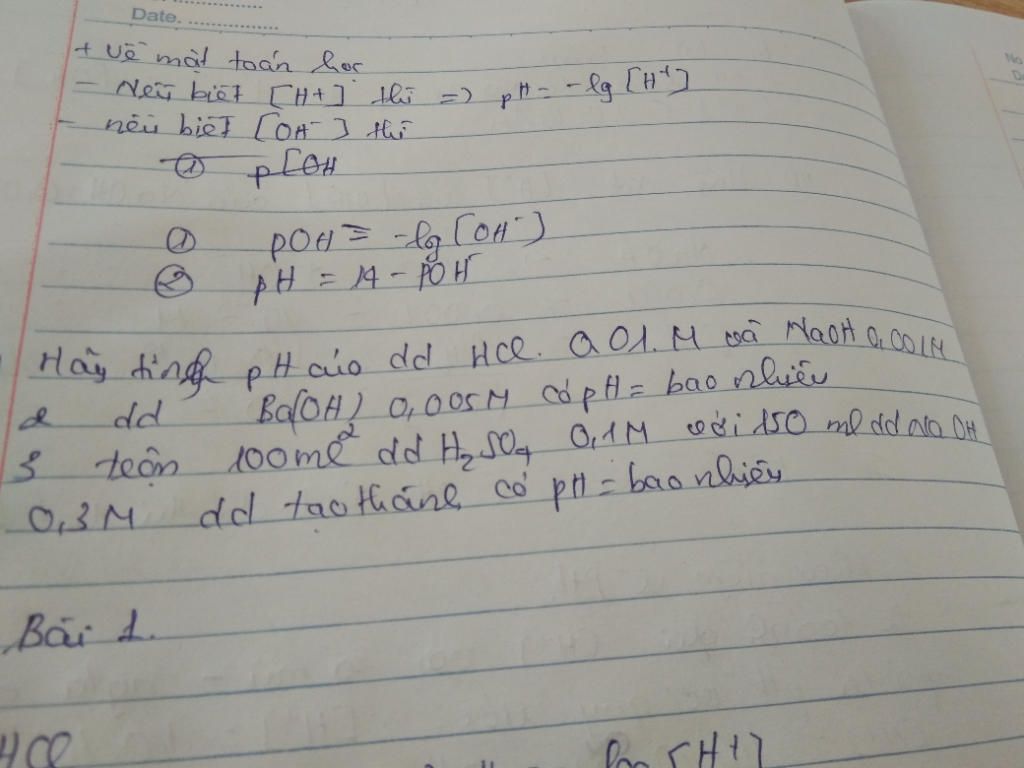 Date.
+ Về mặt toán học
- Nếu biết [H+] thì => pH = -lg [H+]
- nếu biết [OH-] thì
① p[OH
① pOH = -lg [OH-]
② pH = 14 - pOH
Hãy tính pH của dd HCl. 0,01. M và NaOH 0,001M
2 dd Ba(OH)2 0,005M có pH = bao nhiêu
3 trộn 100ml dd H2SO4 0,1M với 150 ml dd NaOH
0,3M dd tạo thành có pH = bao nhiêu
Bài 1.
HCl [H+]